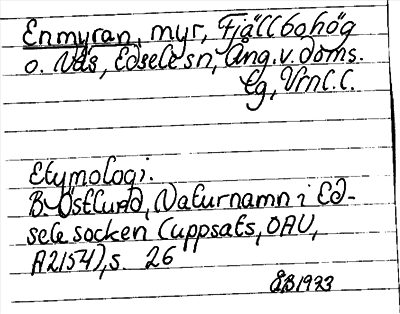 Enmyran, myr, Fjällbohög
o. Väs, Edsele sn, Ång. v. doms.
lg, Vrnl. l.
Etymologi.
B. Östlund, Naturnamn i Ed-
sele socken (uppsats, OAU,
A2154), s. 26
ÅB 1973